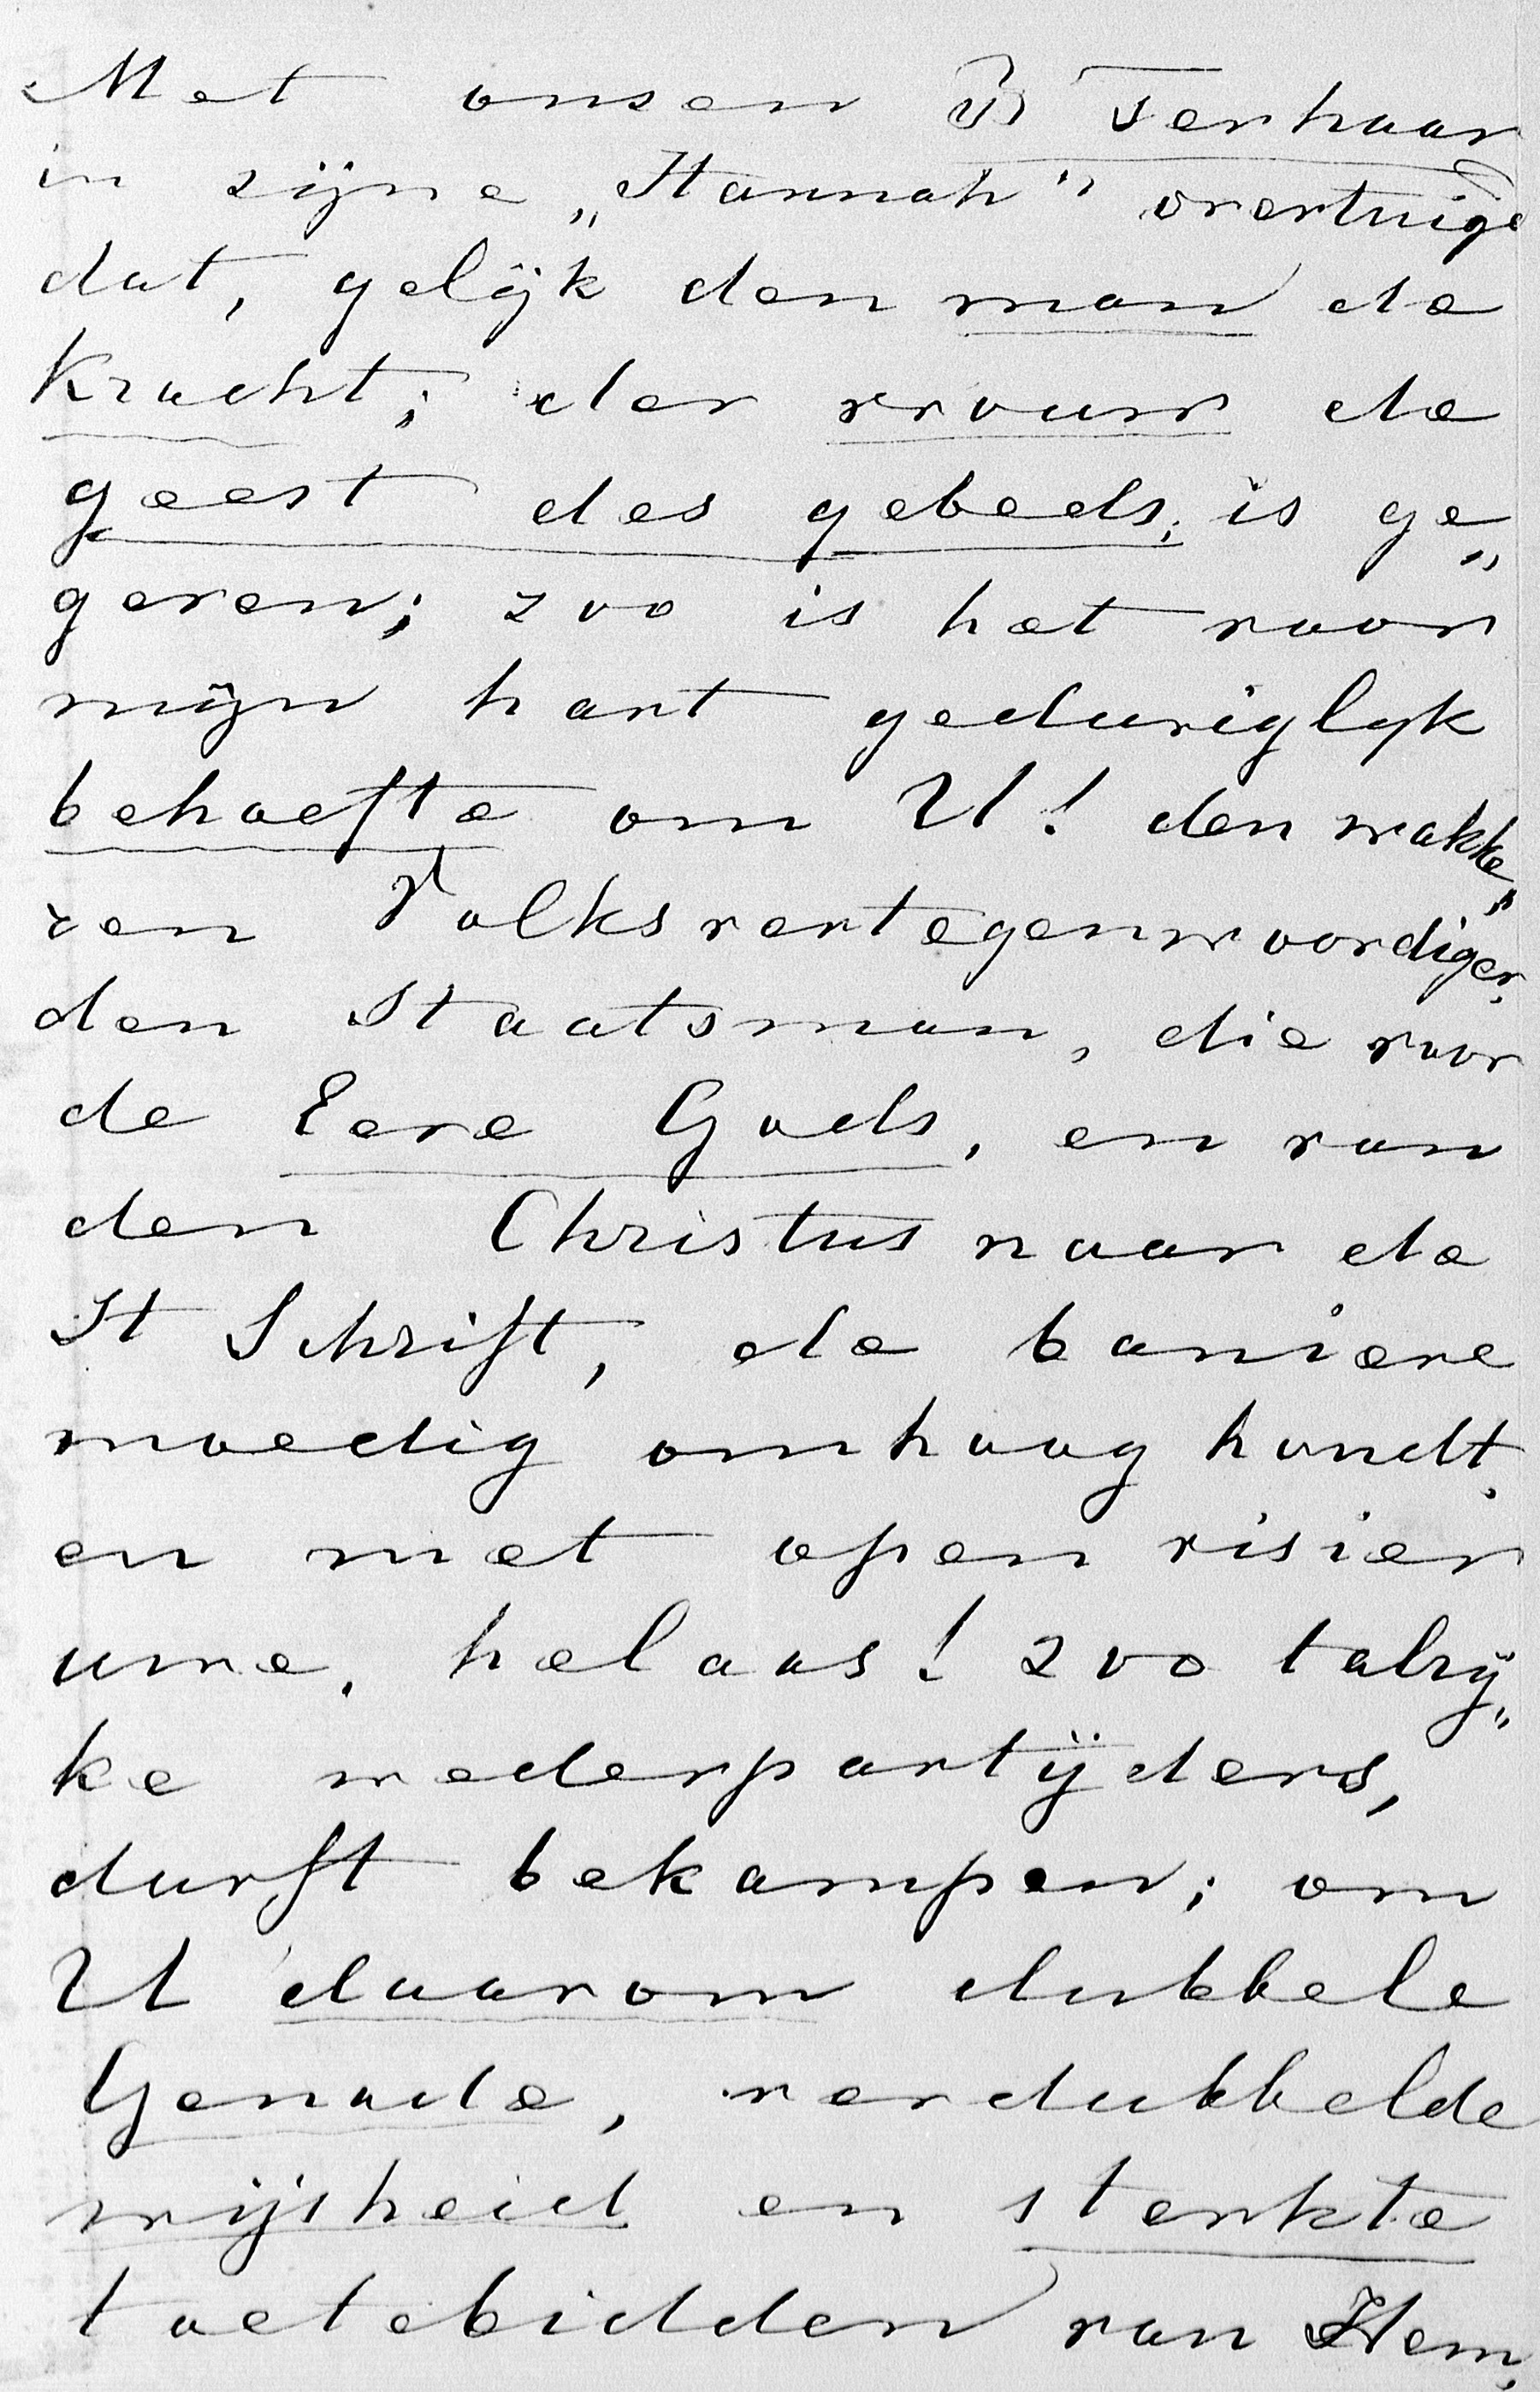 Met onsen B Terhaar
in zijne „Hannah" overtuigd
dat, gelijk den man de
kracht; der vrouw de
geest des gebeds; is ge„
geven; zoo is het voor
mijn hart geduriglyk
behoefte om U! den wakke„
ren Volksvertegenwoordiger,
den Staatsman, die voor
de Eere Gods, en van
den Christus naar de
H Schrift, de baniere
moedig omhoog houdt,
en met open visier
uwe, helaas! zoo talrij„
ke wederpartijders,
durft bekampen; om
U daarom dubbele
Genade, verdubbelde
wijsheid en sterkte
toetebidden van Hem,